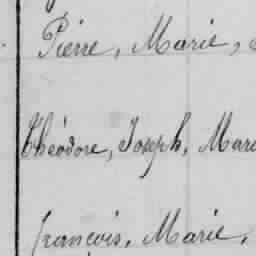 Pierre, Marie,
Théodore, Joseph, Mari
François, Marie,